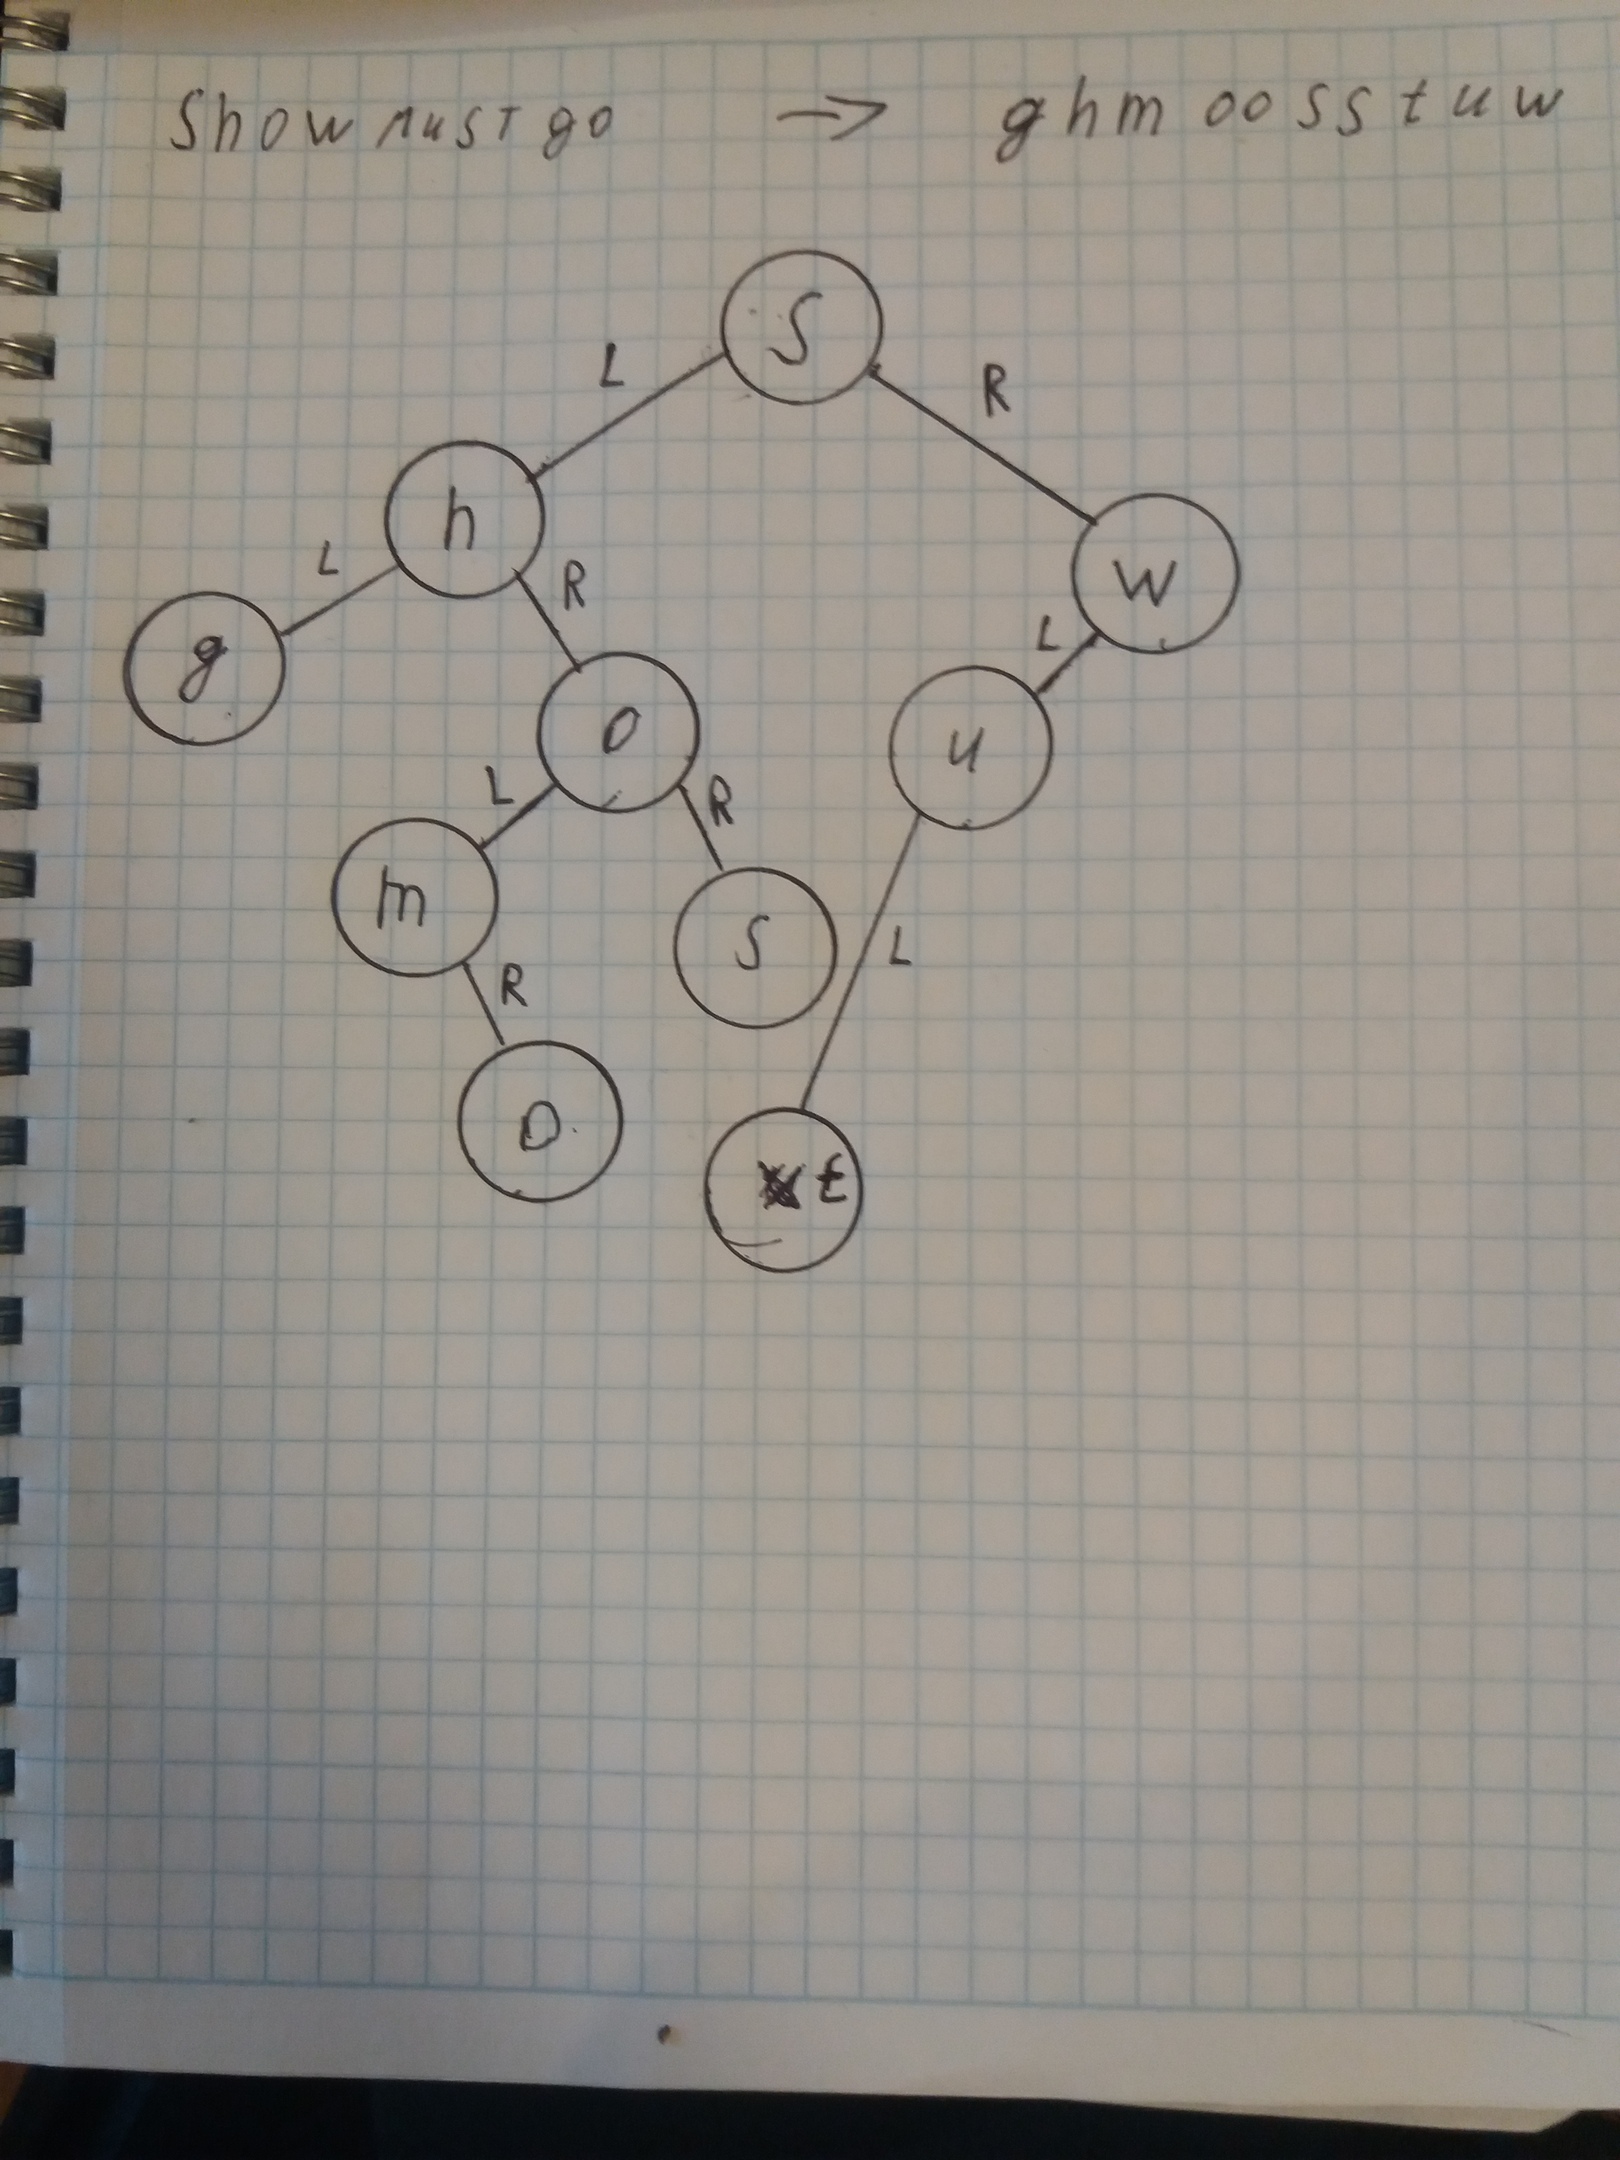 Show must go → g h m o o s s t u w
S
L R
h
w
L R L
g
o
u
L R
m
s
L
R
o
t